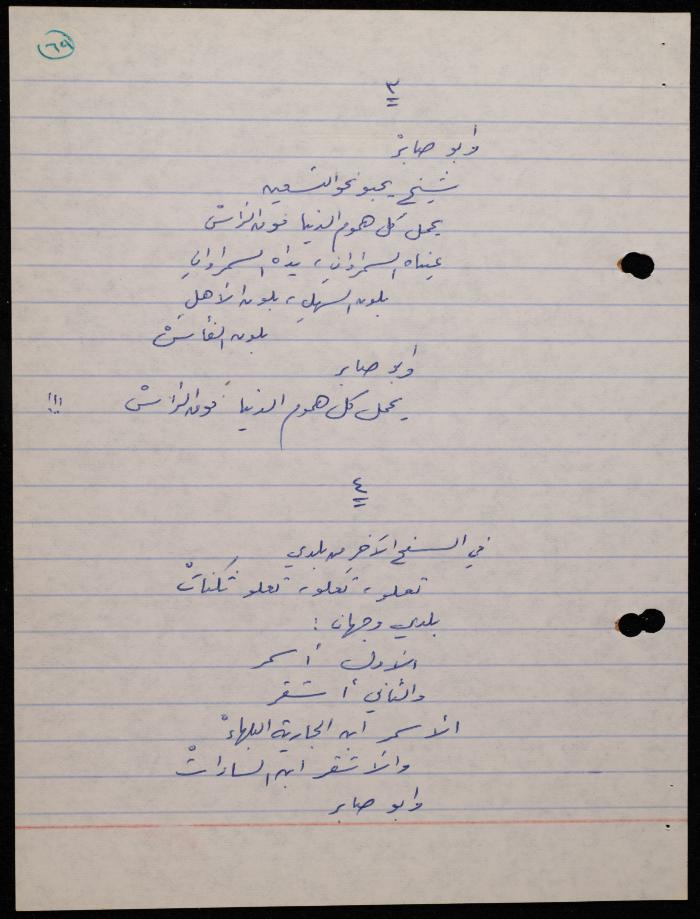 ٦٩
٣
وأبو صابرْ
شيخ يحبو نحو التسعين
يحمل كل هموم الدنيا فوق الرأسْ
عيناه السمراوانِ، يداه السمراوانِ
بلون السهلِ، بلون الأهلِ
بلون الفأسْ
وأبو صابر
يحمل كل هموم الدنيا فوق الرأسْ !!!
٤
في السفح الآخر من بلدي
تعلو، تعلو، تعلو ثكناتْ
بلدي وجهان :
الأول أسمر
والثاني أشقر
الأسمر ابن الجارية البلهاءْ
والأشقر ابن الساداتْ
وأبو صابر